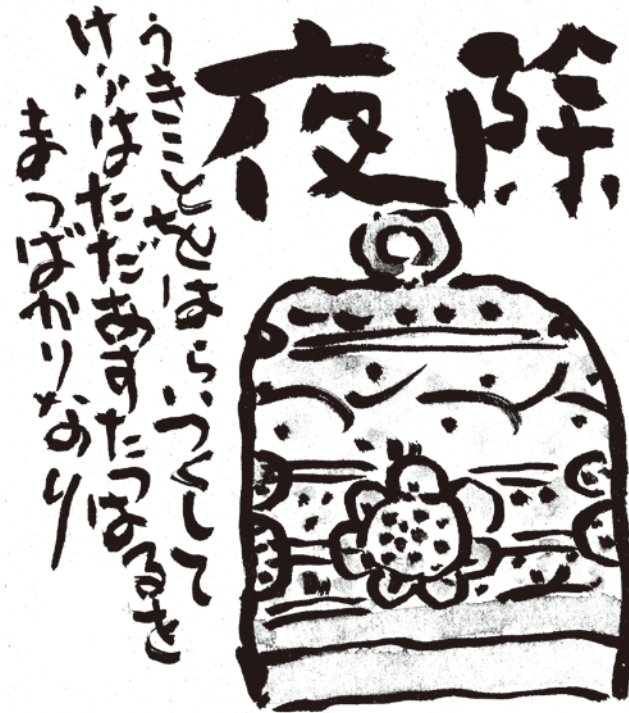 除夜
うきことをはらいつくして
けふはただあすたつはるを
まつばかりなり